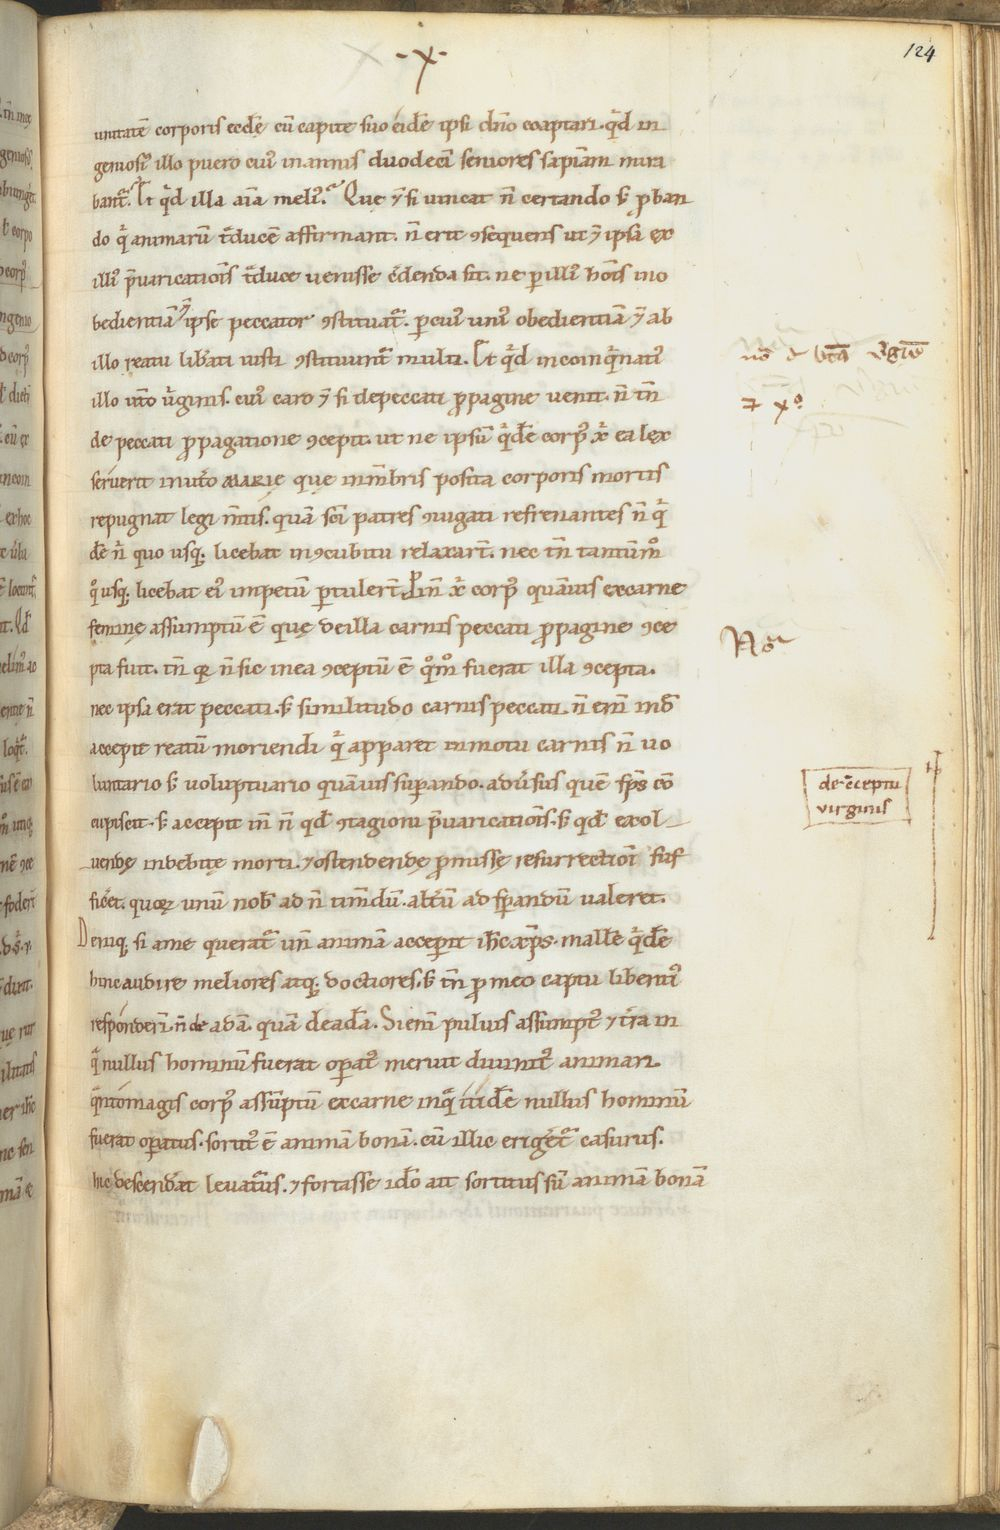 - x -
124
unitatē corporis eccłę cū capite suo eidē ipsi dn̄o coaptari. qͥd in
geniosiꝰ illo puero cuiꝰ in annis duodecī seniores sapiam mira
bant᷑. Et qͥd illa aīa meliꝰ. Quę ⁊ si uincat n̄ certando s; ꝓban
do qͥ animarū t͛ducē affirmant. n̄ erit ꝯsequens ut ⁊ ipsa ex
illiꝰ p̄uaricatiōis t͛duce uenisse c͛denda sit. ne per illiꝰ hōis ino
bedientiā ⁊ ipse peccator ꝯstituat᷑. per cuiꝰ uniꝰ obedientiā ⁊ ab
illo reatu libati iusti ꝯstituunt᷑ multi. Et qͥd incoinqͥnatiꝰ
illo utō uͥginis. cuiꝰ caro ⁊ si de peccati ꝓpagine uenit. n̄ tn̄
de peccati ꝓpagatione ꝯcepit. ut ne ipsū qͥdē corpꝰ xͥ ea lex
seruerit in utͦo MARIE quę in mēbris posita corporis mortis
repugnat legi m̄tis. quā scī patres ꝯiugati refrenantes n̄ qͥ
dē nͥ quo usq; licebat in ꝯcubitu relaxart̄. nec tn̄ tantūmͦ
qͦusq; licebat eiꝰ impetū ꝑtulert̄. Proin̄ xͥ corpꝰ quāuis ex carne
feminę assumptū ē quę de illa carnis peccati ꝓpagine ꝯce
pta fuit. tn̄ qꝛ n̄ sic in ea ꝯceptū ē qͦmͦ fuerat illa ꝯcepta.
nec ipsa erat peccati. s; similitudo carnis peccati. n̄ eni inđ
accepit reatū moriendi qͥ apparet in motu carnis n̄ uo
luntario s; uoluptuario quāuis superando. aduͥsus quē sp̄s cō
cupiscit. s; accepit in̄ n̄ qđ ꝯtagioni p̄uaricatiōis. s; qđ exol
uendę indebitę morti. ⁊ ostendendę ꝓmissę resurrectioni suf
ficͥet. quoꝝ unū nob̄ ad n̄ timēdū. altū ad sperandū ualeret.
Deniq; si a me querat᷑ un̄ animā acceperit ih̄c xp̄s. mallē qͥdē
hinc audire meliores atq; doctiores. s; tn̄ ꝓ meo captu libentiꝰ
responderī. n̄ de adā. quā de adā. Si eni puluis assumptꝰ ⁊ tͥra in
qͣ nullus hominū fuerat operatꝰ meruit diuinitꝰ animari.
qͣntomagis corpꝰ assūptū ex carne in qͣ itidē nullus hominū
fuerat operatus. sortitꝰ ē animā bonā. cū illic erigēt᷑ casurus.
hic descendat leuatͣus. ⁊ fortasse ideo ait sortitus sū animā bonā
nō d bt̄a uͥgiē
⁊ xº
Noᵃ
de ꝯceptu
virginis